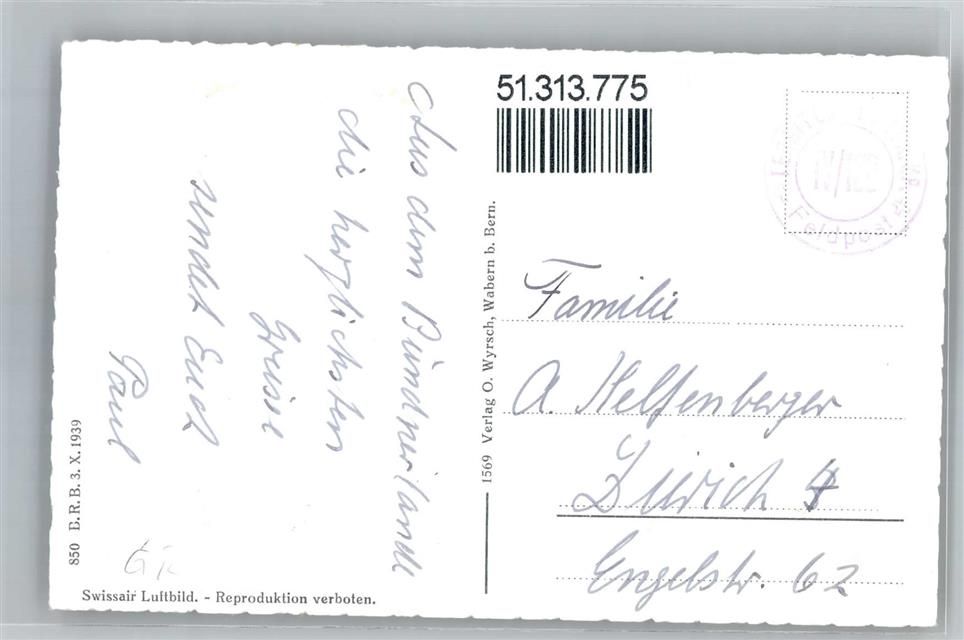 Aus dem Bündnerlandl
die herzlichsten
Grüsse
sendet Euch
Paul
850 E.R.B. 3. X. 1939
Swissair Luftbild. - Reproduktion verboten.
1569 Verlag O. Wyrsch, Wabern b. Bern.
51.313.775
Feldpost
Familie
A. Helfenberger
Zürich 4
Engelstr. 62